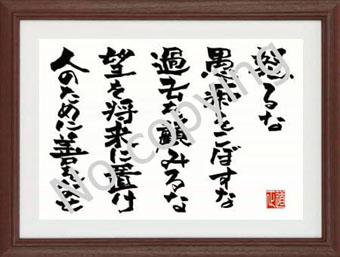 怒るな
愚痴をこぼすな
過去を顧みるな
望を将来に置け
人のために善をなせ
Not copying